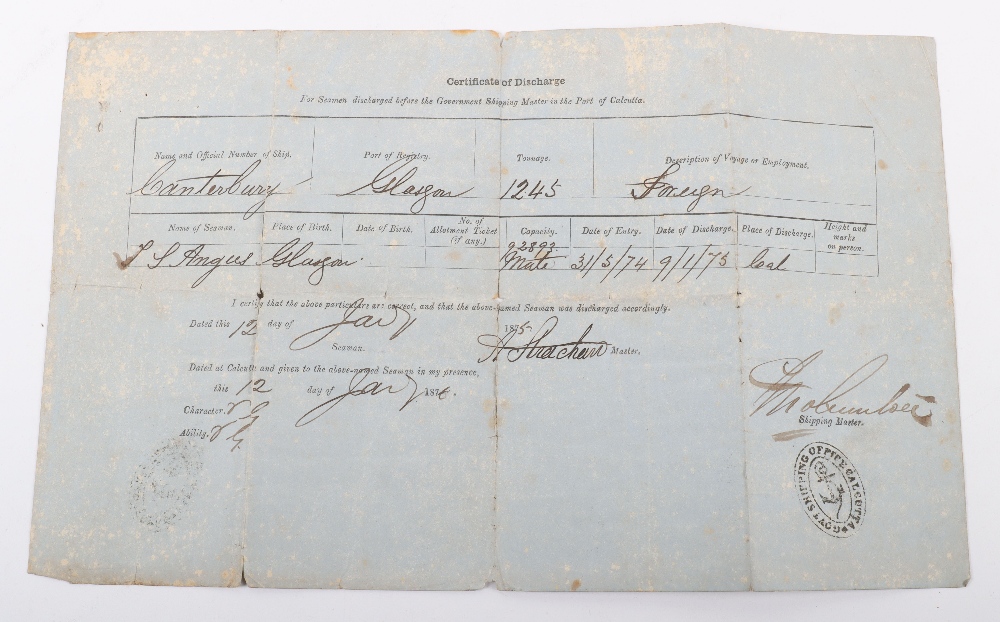 Certificate of Discharge
For Seamen discharged before the Government Shipping Master in the Port of Calcutta.
Name and Official Number of Ship. Port of Registry. Tonnage. Description of Voyage or Employment.
Canterbury Glasgow 1245 Foreign
Name of Seaman. Place of Birth. Date of Birth. No. of Allotment Ticket (if any.) Capacity. Date of Entry. Date of Discharge. Place of Discharge. Height and marks on person.
92892
S Angus Glasgow. Mate 31/5/74 9/1/75 Cal
I certify that the above particulars are correct, and that the above-named Seaman was discharged accordingly.
Dated this 12 day of Jany 1875
Seaman. A Strachan Master.
Dated at Calcutta and given to the above-named Seaman in my presence,
this 12 day of Jany 187
Character. V G
Ability. V G
Shipping Master.
GOVT SHIPPING OFFICE CALCUTTA